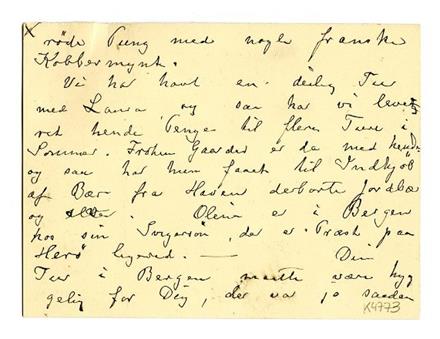 røde Pung med nogle franske
Kobbermynt.
Vi har havt en deilig Tur
med Laura, og saa har vi levet
ret hende Penger til flere Ture i
Sommer. Frøken Gaarder er da med hende
og saa har hun faaet til Indkjøb
af Bær fra Haven derborte Jordbær
og. Olena er i Bergen
hos sin Svigersøn, der er Præst paa
Herø ligeved. — Din
Tur i Bergen maatte være hyg
gelig for Dig, der var jo saadan
K4773